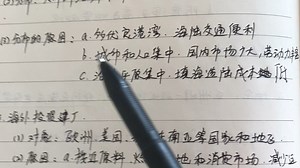 (2)分布的原因：a. 多优良港湾，海陆交通便利
b. 城市和人口集中，国内市场广大，劳动力
c. 集中，填海造陆成本
2. 海外投资建厂
(1) 对象：欧洲、美国、东南亚等国家和地区
(2) 原因：a 接近原料、地和消费市场，减